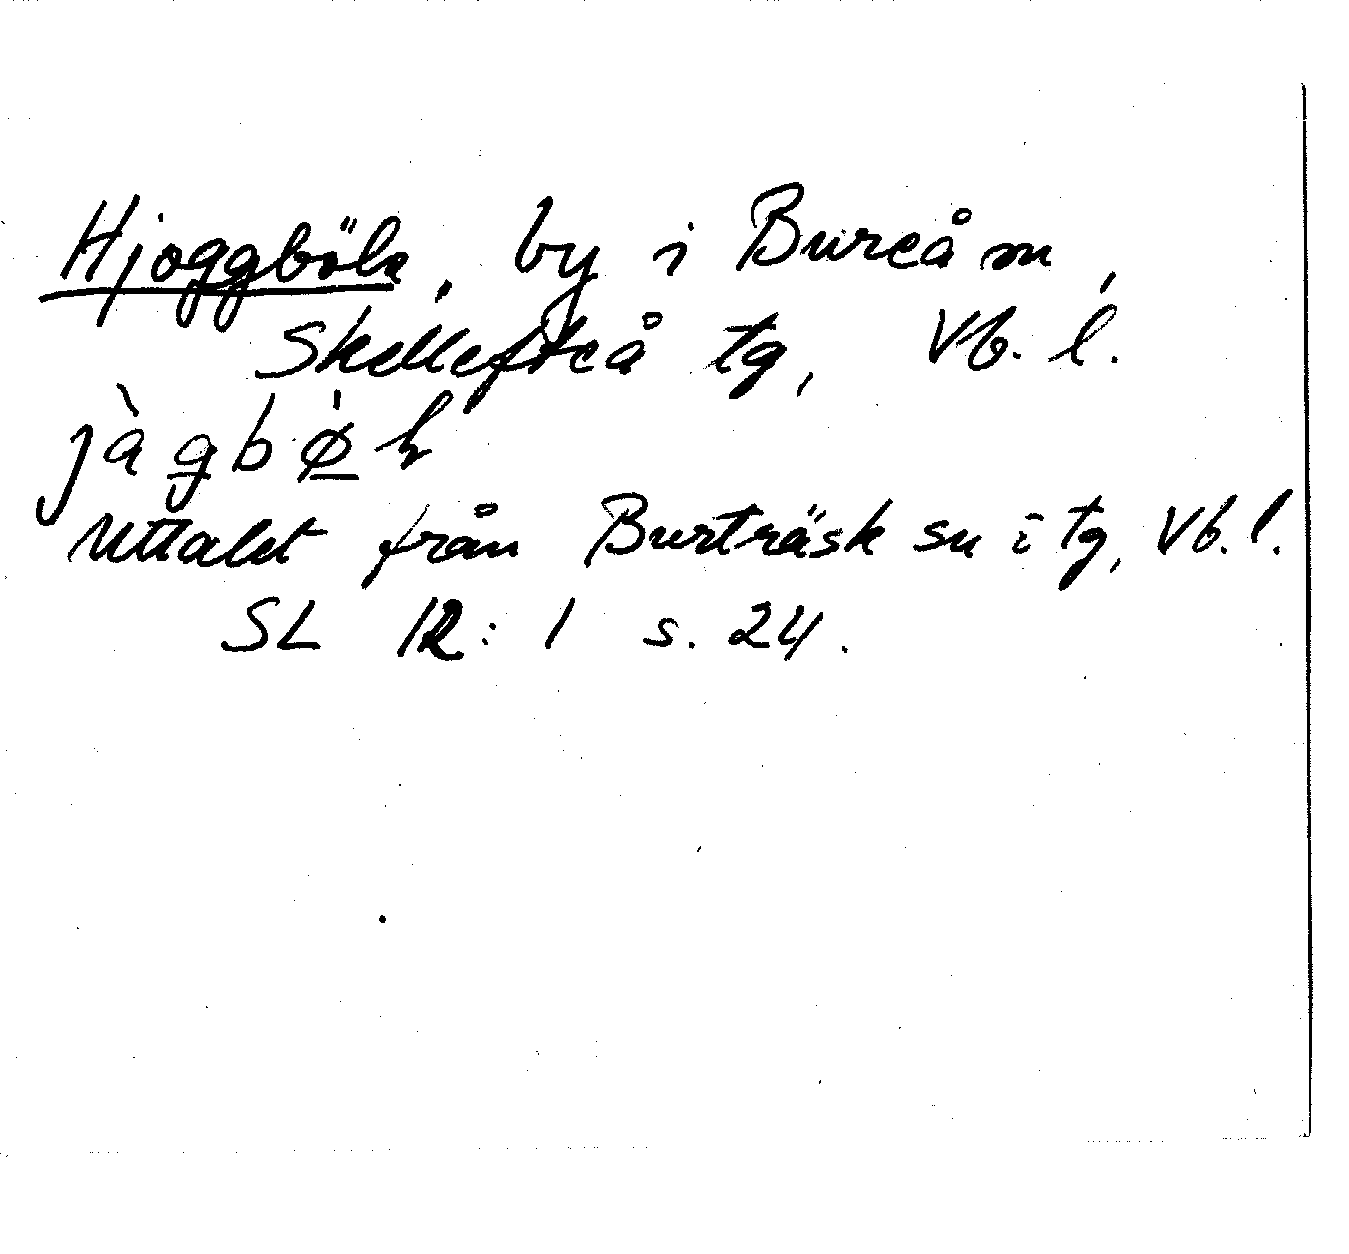 Hjoggböle, by i Bureå sn,
Skellefteå tg, Vb. l.
jàgbø̀l
Uttalet från Burträsk sn i tg, Vb. l.
SL 12:1 s. 24.